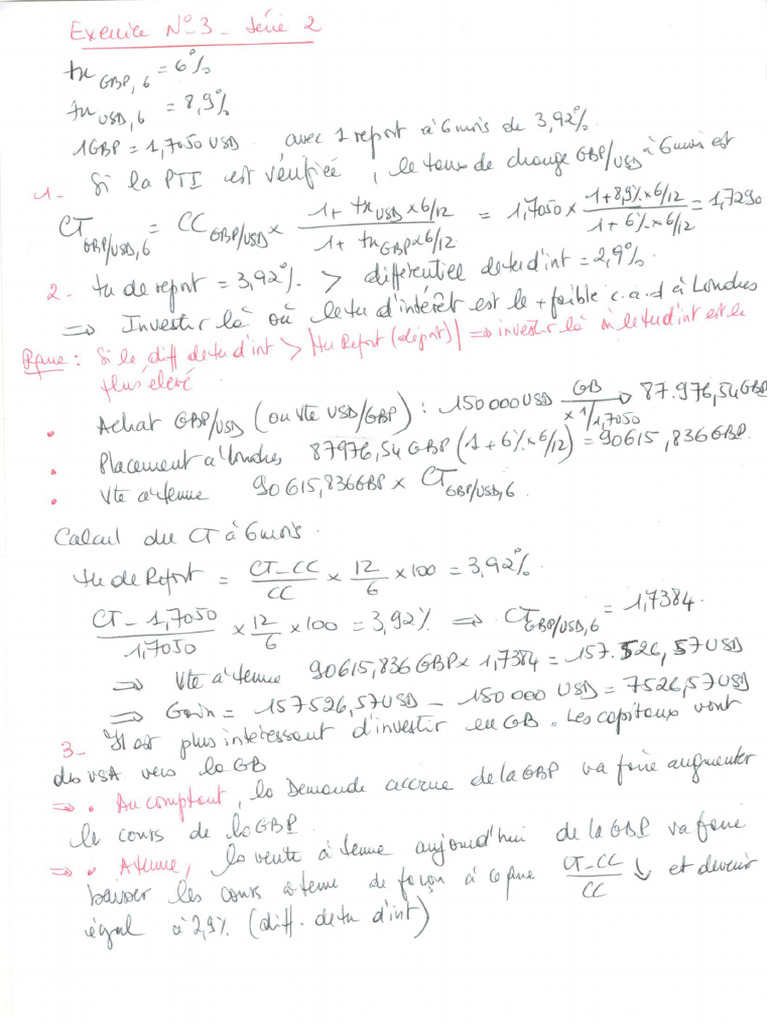 Exercice N°3 - Série 2
tx GBP, 6 = 6%
tx USD, 6 = 8,9%
1GBP = 1,7050 USD avec 1 report à 6 mois de 3,92%.
1- Si la PTI est vérifiée, le taux de change GBP/USD à 6 mois est
CT GBP/USD,6 = CC GBP/USD × (1 + tx USD × 6/12) / (1 + tx GBP × 6/12) = 1,7050 × (1 + 8,9% × 6/12) / (1 + 6% × 6/12) = 1,7290
2- tx de report = 3,92% > différentiel de tx d'int = 2,9%
⇒ Investir là où le tx d'intérêt est le + faible c.a.d à Londres
Rque : Si le diff de tx d'int > |tx Report (déport)| ⇒ investir là où le tx d'int est le
plus élevé
• Achat GBP/USD (ou vte USD/GBP) : 150 000 USD GB × 1/1,7050 → 87.976,54 GBP
• Placement à Londres 87976,54 GBP (1 + 6% × 6/12) = 90615,836 GBP.
• Vte à terme 90615,836 GBP × CT GBP/USD,6.
Calcul du CT à 6 mois.
tx de Report = (CT - CC) / CC × 12/6 × 100 = 3,92%.
(CT - 1,7050) / 1,7050 × 12/6 × 100 = 3,92% ⇒ CT GBP/USD,6 = 1,7384.
⇒ Vte à terme 90615,836 GBP × 1,7384 = 157.526,57 USD
⇒ Gain = 157526,57 USD - 150 000 USD = 7526,57 USD
3- Il est plus intéressant d'investir en GB. Les capitaux vont
des USA vers la GB
⇒ • Au comptant, la Demande accrue de la GBP va faire augmenter
le cours de la GBP.
⇒ • A terme, la vente à terme aujourd'hui de la GBP va faire
baisser les cours à terme de façon à ce que (CT - CC) / CC ↓ et devenir
égal à 2,9% (diff. de tx d'int)